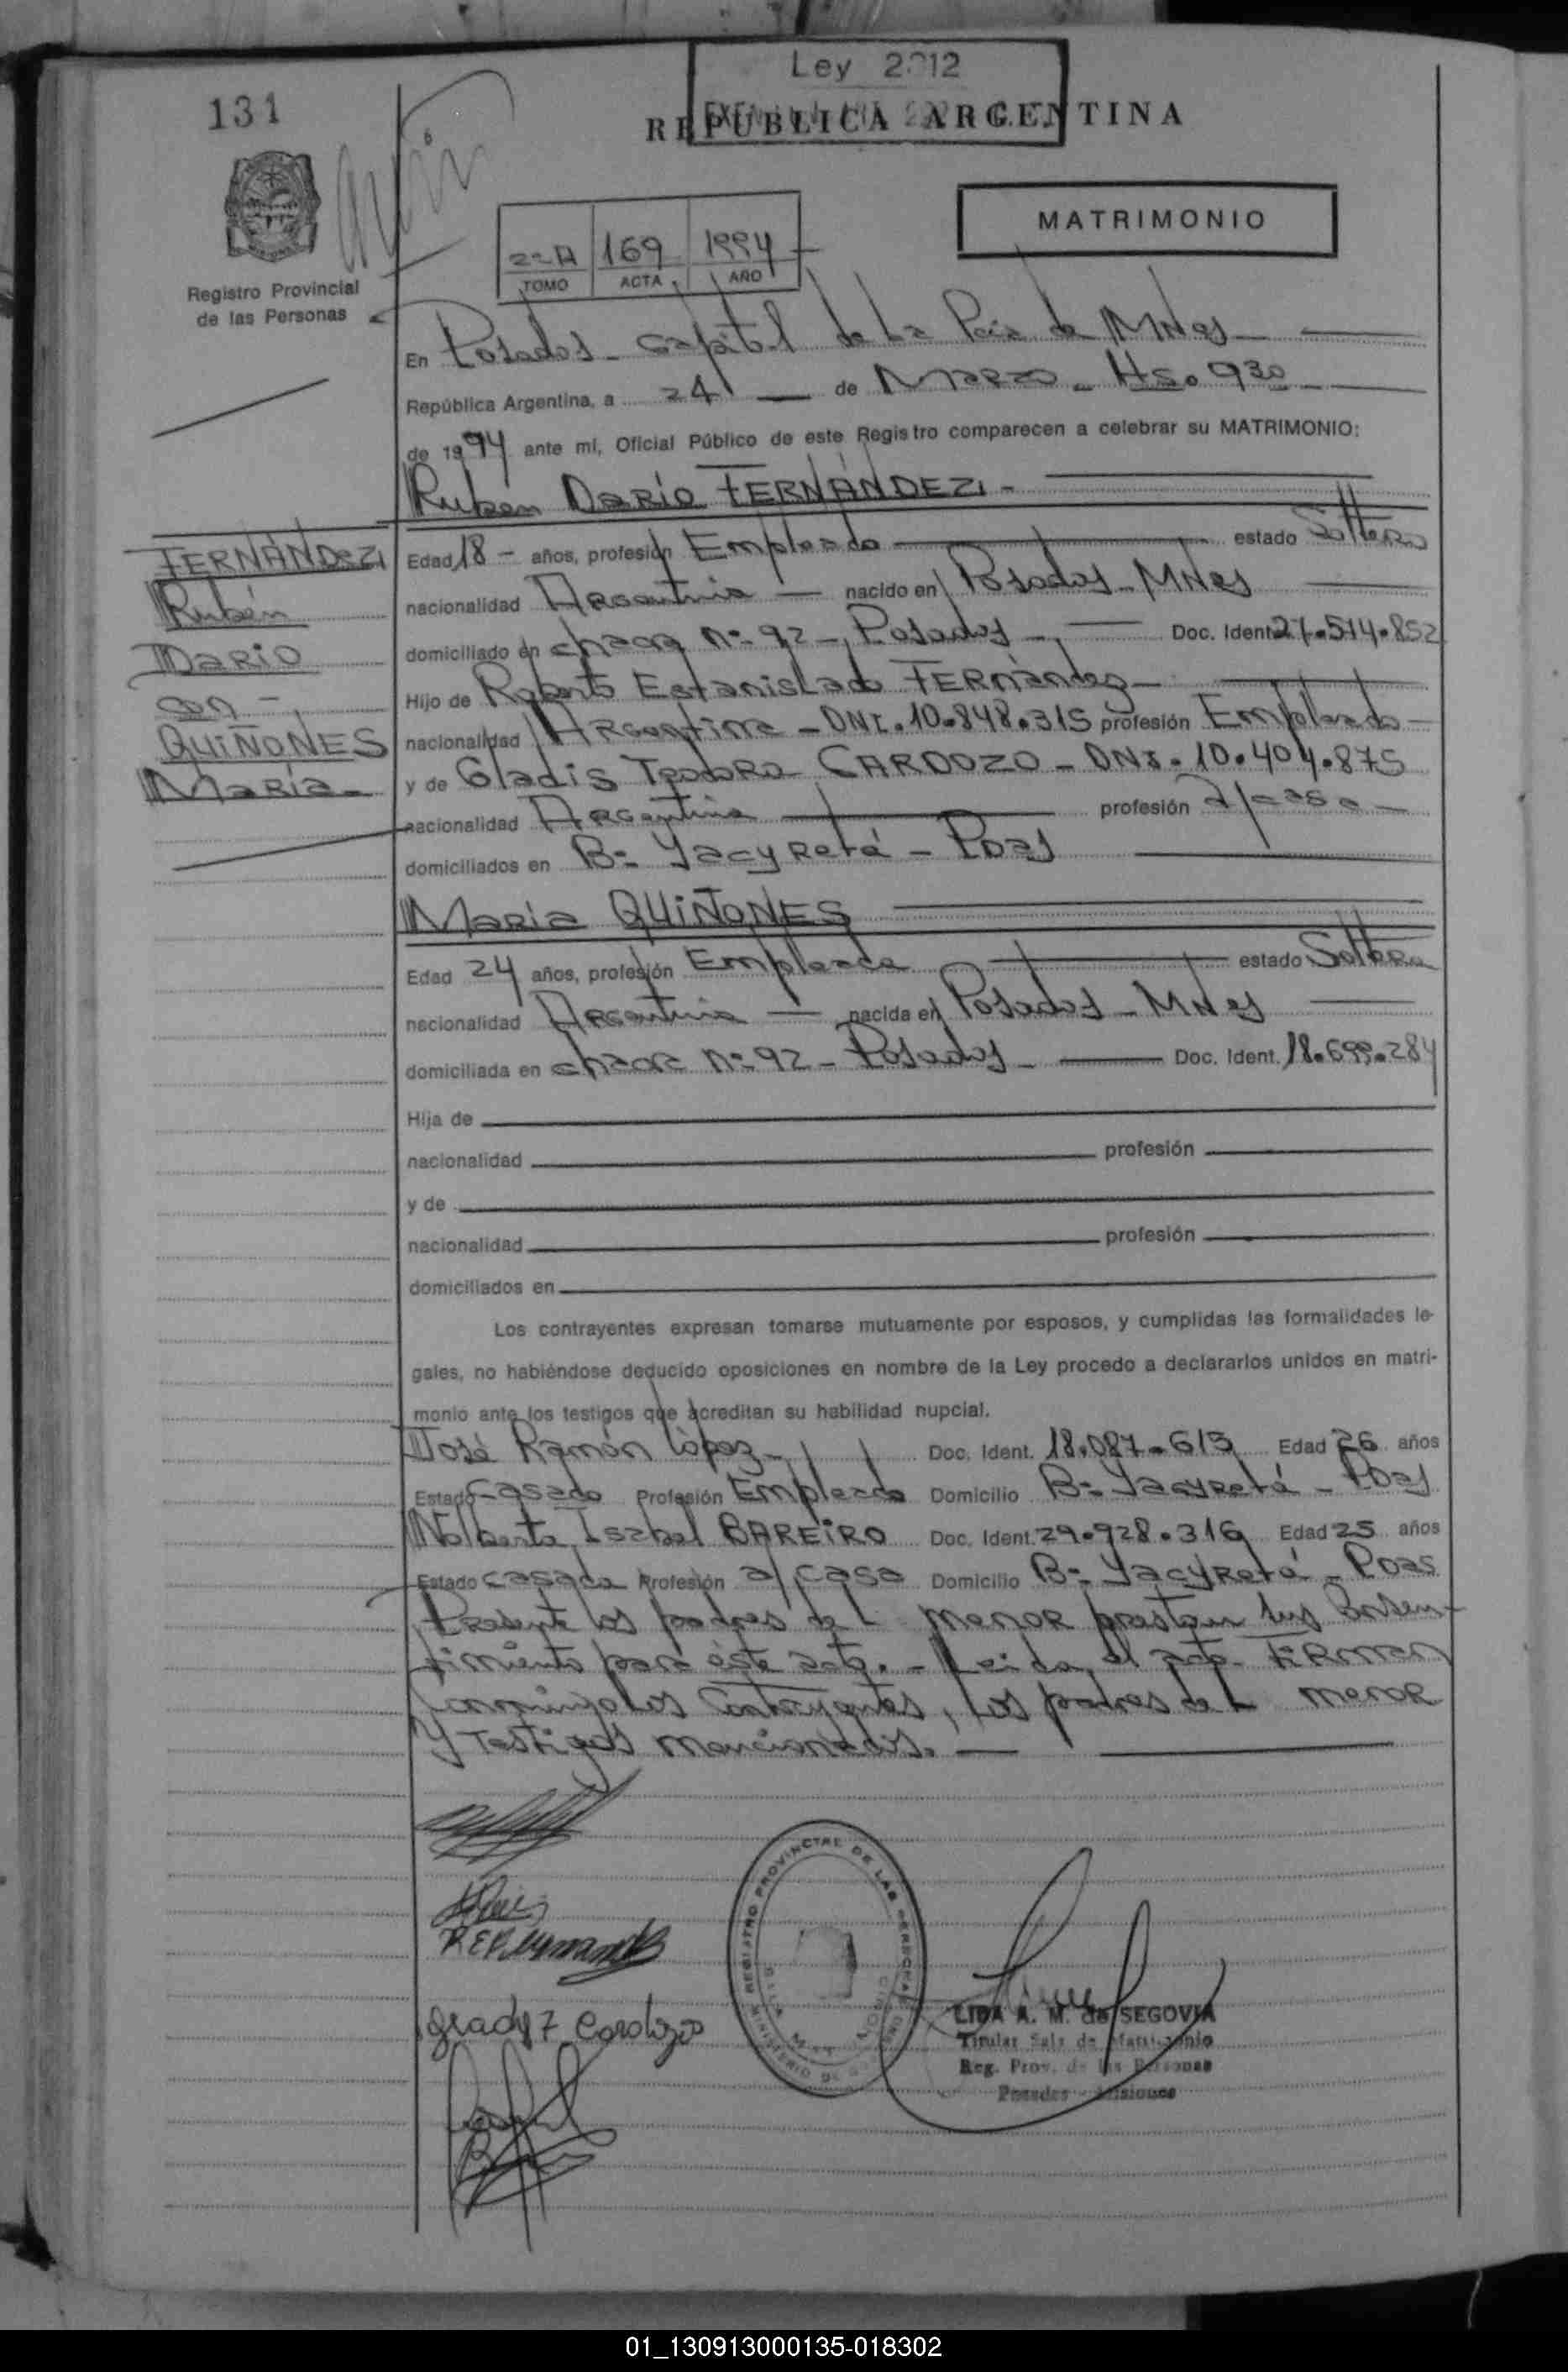 Ley 2312
131
REPUBLICA ARGENTINA
MATRIMONIO
22A 169 1994
TOMO ACTA AÑO
Registro Provincial
de las Personas
En Posadas - Capital de La Pcia de Mnes
República Argentina, a 24 de Marzo - Hs. 9 30
de 1994 ante mí, Oficial Público de este Registro comparecen a celebrar su MATRIMONIO:
Rubén Darío FERNÁNDEZ -
FERNÁNDEZ
Rubén
Dario
con -
QUIÑONES
María -
Edad 18 - años, profesión Empleado estado Soltero
nacionalidad Argentina nacido en Posadas - Mnes
domiciliado en chacra Nº 92 - Posadas - Doc. Ident. 27.514.852
Hijo de Roberto Estanislado FERNÁNDEZ -
nacionalidad Argentina - DNI. 10.848.315 profesión Empleado -
y de Gladis Teodora CARDOZO - DNI. 10.404.875
nacionalidad Argentina profesión a/casa -
domiciliados en Bº Yacyretá - Pdas
María QUIÑONES
Edad 24 años, profesión Empleada estado Soltera
nacionalidad Argentina nacida en Posadas - Mnes
domiciliada en chacra Nº 92 - Posadas - Doc. Ident. 18.699.284
Hija de
nacionalidad profesión
y de
nacionalidad profesión
domiciliados en
Los contrayentes expresan tomarse mutuamente por esposos, y cumplidas las formalidades le-
gales, no habiéndose deducido oposiciones en nombre de la Ley procedo a declararlos unidos en matri-
monio ante los testigos que acreditan su habilidad nupcial.
José Ramón López - Doc. Ident. 18.087.613 Edad 26 años
Estado Casado Profesión Empleado Domicilio Bº Yacyretá - Pdas
Nolberta Isabel BAREIRO Doc. Ident. 29.928.316 Edad 25 años
Estado casada Profesión a/casa Domicilio Bº Yacyretá - Pdas
Presente los padres del menor prestan sus Consen-
timiento para éste acto. - Leída el acta - FIRMAN
conmigo los Contrayentes, los padres del menor
y testigos mencionados.
REGISTRO PROVINCIAL DE LAS PERSONAS
MINISTERIO DE GOBIERNO
LIDA A. M. de SEGOVIA
Titular Sala de Matrimonio
Reg. Prov. de las Personas
Posadas - Misiones
01_130913000135-018302